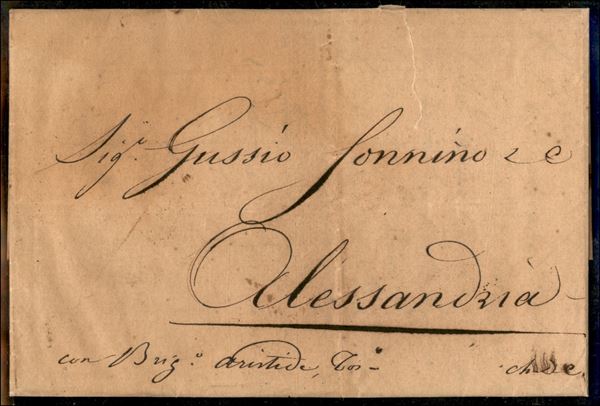 Sig.ri Gussio Sonnino e C
Alessandria
con Brig.o Aristide, Tos–